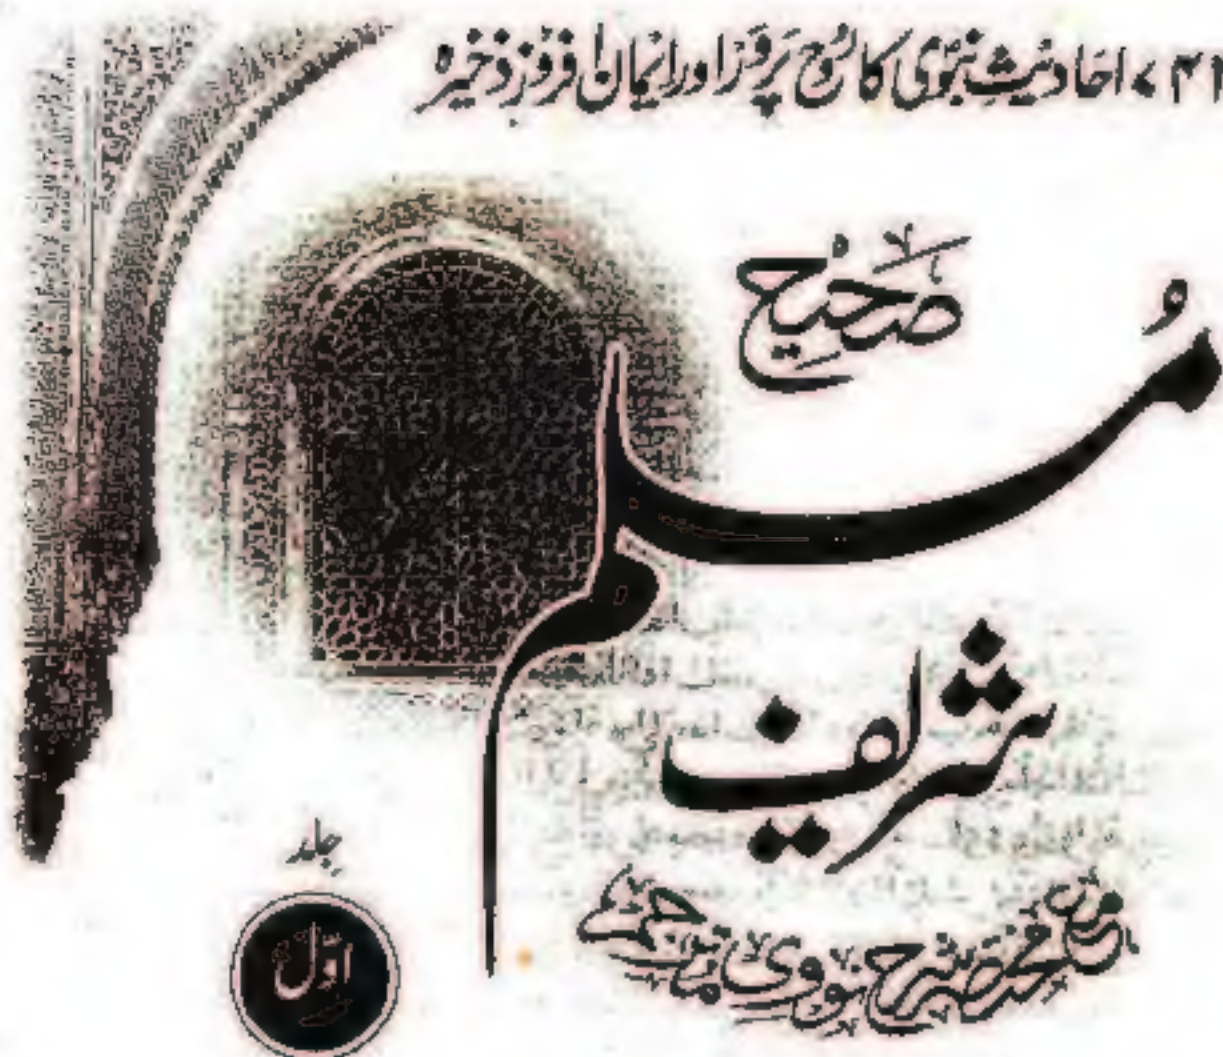 احادیث نبوی کا رُوح پَروَر اور ایمان افروز ذخیرہ
صَحِیح
مُسلم
شریف
مع مختصر شرح نووی مترجم
جلد
اوّل